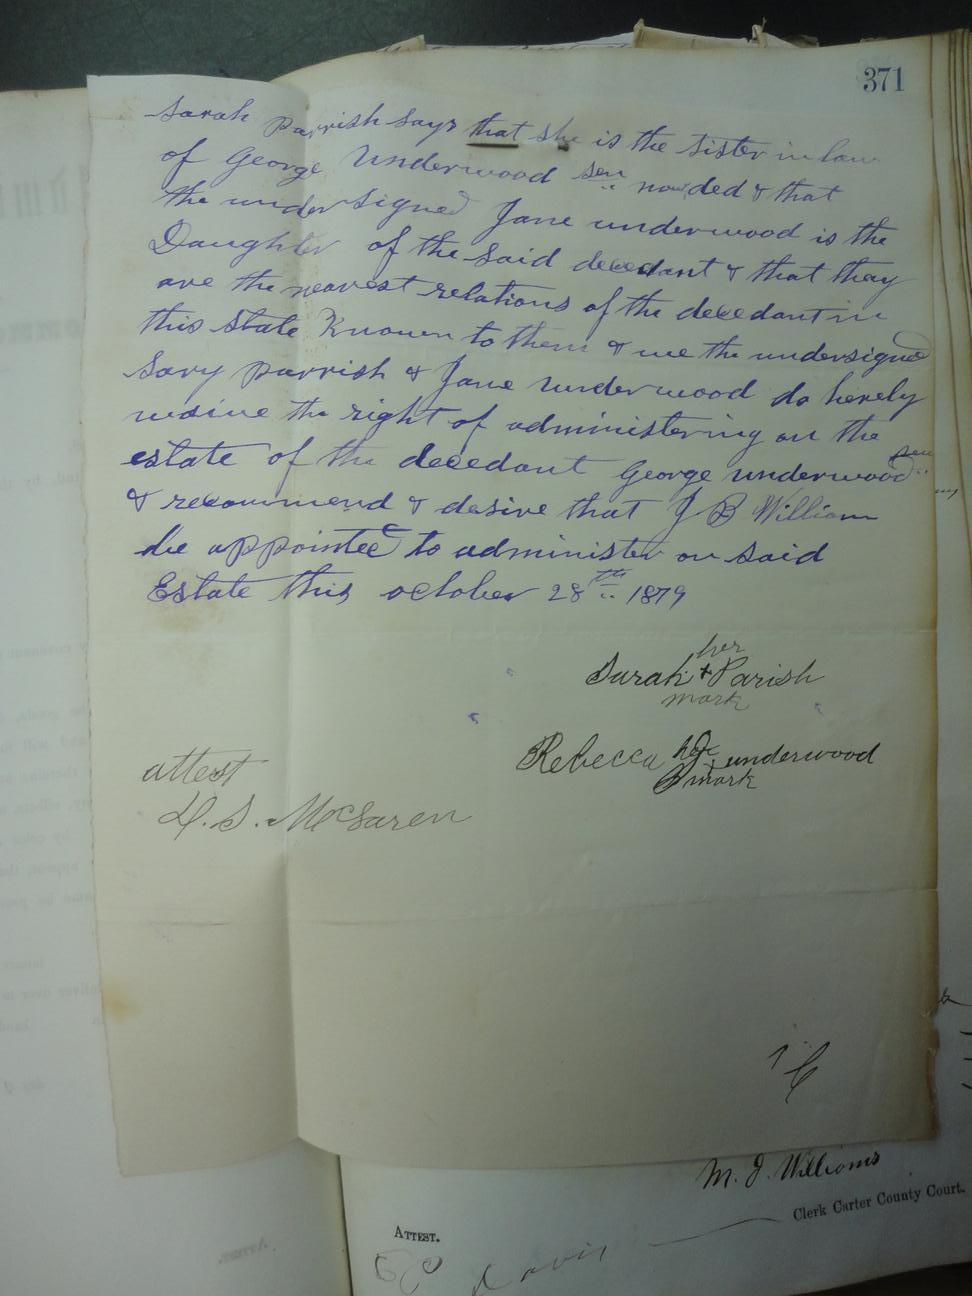 371
Sarah Parrish says that she is the sister in law
of George Underwood sen now ded & that
the under signed Jane underwood is the
Daughter of the said decedant & that thay
are the nearest relations of the decedant in
this State Known to them & we the undersigned
Sary parrish & Jane underwood do hereby
waive the right of administering on the
estate of the decedant George underwood sen
& recommend & desire that J B William
be appointed to administer on said
Estate this october 28th 1879
her
Sarah + Parish
mark
Rebecca her underwood
mark
attest
M. J. Williams
Clerk Carter County Court.
ATTEST.
Davis